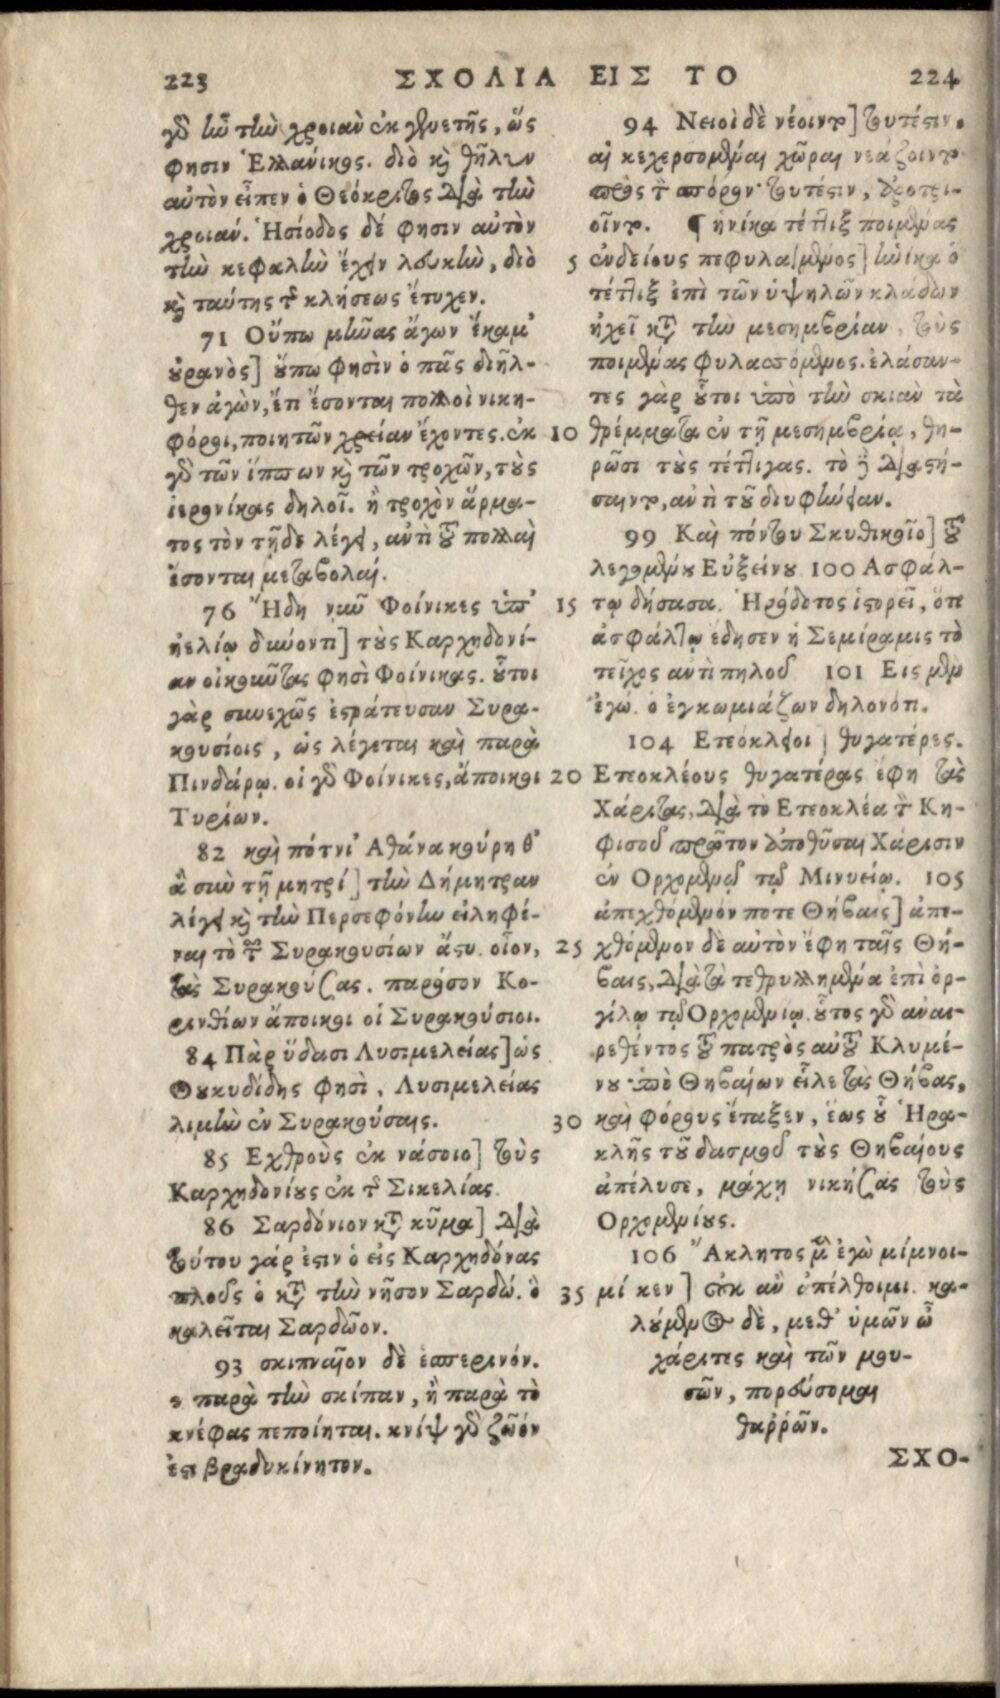 223 ΣΧΟΛΙΑ ΕΙΣ ΤΟ 224
γὸ ἰῶ τἰω χροιαὺ ἐκ γλυετῆς, ὥς
φησιν Ἑλλανικος. διὸ κὶ θῆλυν
αὐτὸν εἶπεν ὁ Θεόκριτος διὰ τἰω
χροιαν. Ἡσίοδος δέ φησιν αὐτὸν
τἰω κεφαλἰω ἔχειν λευκἰω, διὸ
κὶ ταύτης τῆς κλήσεως ἔτυχεν.
71 Οὔπω μἰωας ἄγων ἔκαμ'
οὐρανὸς] οὔπω φησὶν ὁ πᾶς διῆλ-
θεν ἀγὼν, ἔτι ἔσονται πολλοὶ νικη-
φόροι, ποιητῶν χρείαν ἔχοντες. ἐκ
γὸ τῶν ἵππων κὶ τῶν τροχῶν, τοὺς
ἱερονίκας δηλοῖ. ἢ τροχὸν ἅρμα-
τος τὸν τῇδε λέγει, αντὶ τοῦ πολλαὶ
ἔσονται μεταβολαί.
76 Ἤδη νῦν Φοίνικες ὑπ'
ἠελίῳ δύνοντι] τοὺς Καρχηδονί-
αν οἰκοῦντας φησὶ Φοίνικας. οὗτοι
γὰρ συνεχῶς ἐστράτευσαν Συρα-
κουσίοις, ὡς λέγεται καὶ παρὰ
Πινδάρῳ. οἱ γὸ Φοίνικες, ἄποικοι
Τυρίων.
82 καὶ πότνι' Αθάνα κούρη θ'
ἃ σὺν τῇ μητρί] τὴν Δήμητραν
λέγει κὶ τὴν Περσεφόνην εἰληφέ-
ναι τὸ τῶν Συρακουσίων ἄστυ. οἷον,
τὰς Συρακούσας. παρόσον Κο-
ρινθίων ἄποικοι οἱ Συρακούσιοι.
84 Πὰρ ὕδασι Λυσιμελείας] ὡς
Θουκυδίδης φησὶ, Λυσιμελείας
λιμὴν ἐν Συρακούσαις.
85 Εχθροὺς ἐκ νάσοιο] τοὺς
Καρχηδονίους ἐκ τῆς Σικελίας.
86 Σαρδόνιον κατὰ κῦμα] διὰ
τούτου γάρ ἐστιν ὁ εἰς Καρχηδόνας
πλοῦς ὁ κατὰ τὴν νῆσον Σαρδώ. ὃ
καλεῖται Σαρδῶον.
93 σκιπναῖον δὲ ἑσπερινόν.
ἢ παρὰ τὴν σκίπαν, ἢ παρὰ τὸ
κνέφας πεποίηται. κνίψ γὸ ζῶόν
ἐστι βραδυκίνητον.
94 Νειοὶ δὲ νέοιντο] τουτέστιν,
αἱ κεχερσομέναι χῶραι νεάζοιντο
πρὸς τὸν σπόρον· τουτέστιν, ἀροτρι-
οῖντο. ¶ ἡνίκα τέττιξ ποιμένας
5 ἐνδείους πεφυλαγμένος] ἡνίκα ὁ
τέττιξ ἐπὶ τῶν ὑψηλῶν κλάδων
ἠχεῖ κατὰ τὴν μεσημβρίαν, τοὺς
ποιμένας φυλασσόμενος. ἐλάσαν-
τες γὰρ οὗτοι ὑπὸ τὴν σκιὰν τὰ
10 θρέμματα ἐν τῇ μεσημβρίᾳ, θη-
ρῶσι τοὺς τέττιγας. τὸ δὲ διαστή-
σαιντο, αντὶ τοῦ διυφήναιαν.
99 Καὶ πόντου Σκυθικοῖο] τοῦ
λεγομένου Εὐξείνου. 100 Ασφάλ-
15 τῳ δήσασα. Ἡρόδοτος ἱστορεῖ, ὅτι
ἀσφάλτῳ ἔδησεν ἡ Σεμίραμις τὸ
τεῖχος αντὶ πηλοῦ 101 Εις μὲν
ἐγώ. ὁ ἐγκωμιάζων δηλονότι.
104 Ετεόκλειοι ] θυγατέρες.
20 Ετεοκλέους θυγατέρας ἔφη τὰς
Χάριτας, διὰ τὸ Ετεοκλέα τὸν Κη-
φισοῦ πρῶτον ἀποθῦσαι Χάρισιν
ἐν Ορχομενῷ τῷ Μινυείῳ. 105
ἀπεχθόμενόν ποτε Θήβαις] ἀπε-
25 χθόμενον δὲ αὐτὸν ἔφη ταῖς Θή-
βαις, διὰ τὰ τεθρυλλημένα ἐπὶ ὀρ-
γίλῳ τῷ Ορχομενίῳ. οὗτος γὸ αναι-
ρεθέντος τοῦ πατρὸς αὐτοῦ Κλυμέ-
νου ὑπὸ Θηβαίων εἷλε τὰς Θήβας,
30 καὶ φόρους ἔταξεν, ἕως οὗ Ἡρα-
κλῆς τοῦ δασμοῦ τοὺς Θηβαίους
ἀπέλυσε, μάχῃ νικήσας τοὺς
Ορχομενίους.
106 Ἄκλητος μὲν ἐγὼ μίμνοι-
35 μί κεν ] οὐκ αὖ ἀπέλθοιμι. κα-
λούμενος δὲ, μεθ' ὑμῶν ὦ
χάριτες καὶ τῶν μου-
σῶν, πορεύσομαι
θαῤῥῶν.
ΣΧΟ-